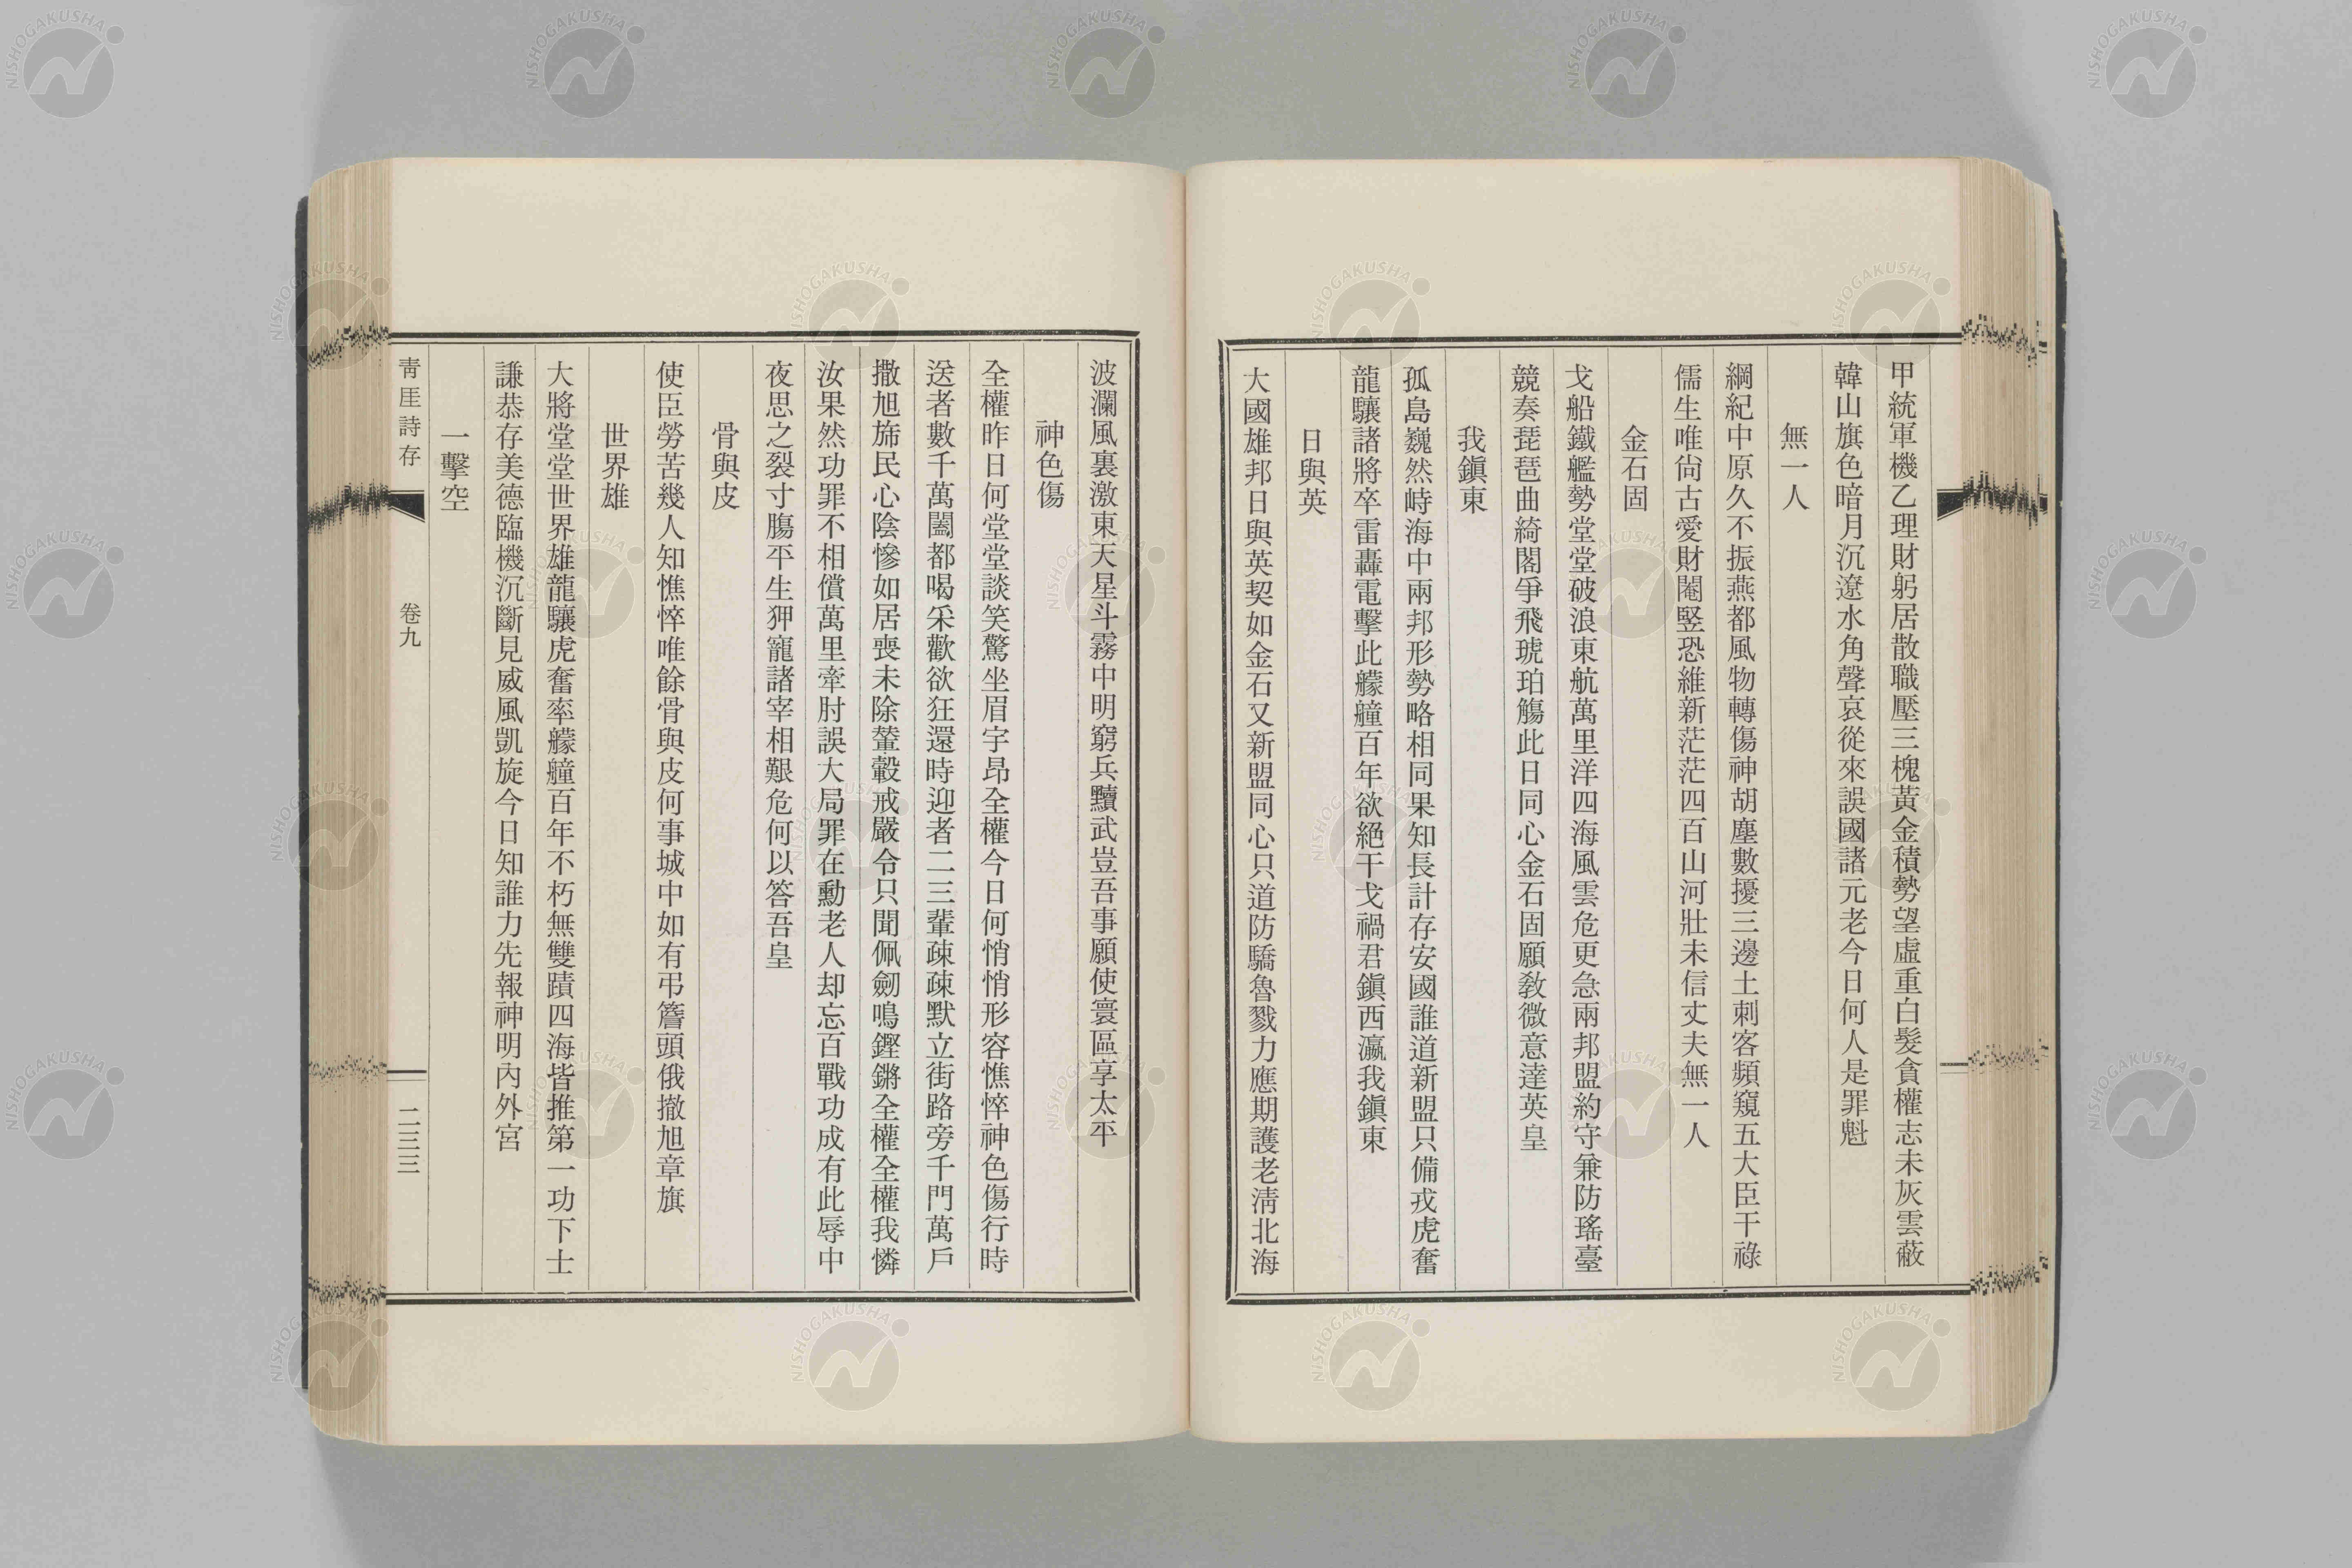 甲統軍機乙理財躬居散職壓三槐黃金積勢望虛重白髮貪權志未灰雲蔽
韓山旗色暗月沉遼水角聲哀從來誤國諸元老今日何人是罪魁
無一人
綱紀中原久不振燕都風物轉傷神胡塵數擾三邊土刺客頻窺五大臣干祿
儒生唯尙古愛財閹竪恐維新茫茫四百山河壯未信丈夫無一人
金石固
戈船鐵艦勢堂堂破浪東航萬里洋四海風雲危更急兩邦盟約守兼防瑤臺
競奏琵琶曲綺閣爭飛琥珀觴此日同心金石固願敎微意達英皇
我鎭東
孤島巍然峙海中兩邦形勢略相同果知長計存安國誰道新盟只備戎虎奮
龍驤諸將卒雷轟電擊此艨艟百年欲絕干戈禍君鎭西瀛我鎭東
日與英
大國雄邦日與英契如金石又新盟同心只道防驕魯戮力應期護老淸北海
波瀾風裏激東天星斗霧中明窮兵黷武豈吾事願使寰區享太平
神色傷
全權昨日何堂堂談笑驚坐眉宇昂全權今日何悄悄形容憔悴神色傷行時
送者數千萬闔都喝采歡欲狂還時迎者二三輩疎疎默立街路旁千門萬戶
撒旭旆民心陰慘如居喪未除輦轂戒嚴令只聞佩劒鳴鏗鏘全權全權我憐
汝果然功罪不相償萬里牽肘誤大局罪在勳老人却忘百戰功成有此辱中
夜思之裂寸膓平生狎寵諸宰相艱危何以答吾皇
骨與皮
使臣勞苦幾人知憔悴唯餘骨與皮何事城中如有弔簷頭俄撤旭章旗
世界雄
大將堂堂世界雄龍驤虎奮率艨艟百年不朽無雙蹟四海皆推第一功下士
謙恭存美德臨機沉斷見威風凱旋今日知誰力先報神明內外宮
一擊空
靑厓詩存
卷九
二三三
NISHOGAKUSHA